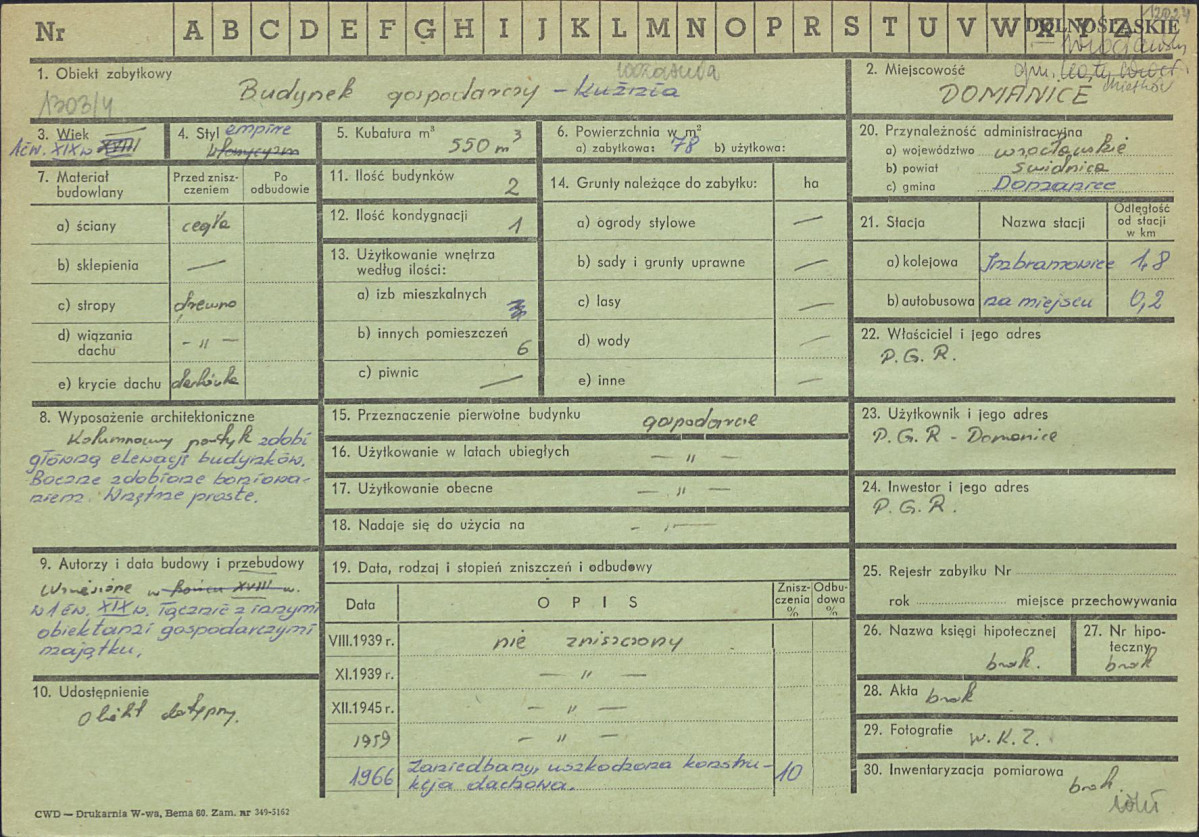 Nr A B C D E F G H I J K L M N O P R S T U V W X Y Z
DOLNOŚLĄSKIE
12024
1. Obiekt zabytkowy
1303/4
Budynek gospodarczy - kuźnia
2. Miejscowość
gm.
DOMANICE
3. Wiek
1 ćw. XIX w XVIII
4. Styl empire
klasycyzm
5. Kubatura m³
550 m³
6. Powierzchnia w m²
a) zabytkowa: 78 b) użytkowa:
20. Przynależność administracyjna
a) województwo wrocławskie
b) powiat Świdnica
c) gmina Domanice
7. Materiał budowlany
Przed zniszczeniem
Po odbudowie
a) ściany cegła
b) sklepienia —
c) stropy drewno
d) wiązania dachu - " -
e) krycie dachu dachówka
11. Ilość budynków 2
12. Ilość kondygnacji 1
13. Użytkowanie wnętrza według ilości:
a) izb mieszkalnych
b) innych pomieszczeń 6
c) piwnic —
14. Grunty należące do zabytku: ha
a) ogrody stylowe —
b) sady i grunty uprawne —
c) lasy —
d) wody —
e) inne —
21. Stacja
Nazwa stacji
Odległość od stacji w km
a) kolejowa Imbramowice 1,8
b) autobusowa na miejscu 0,2
22. Właściciel i jego adres
P. G. R.
8. Wyposażenie architektoniczne
Kolumnowy portyk zdobi
główną elewację budynków.
Boczne zdobione boniowa-
niem. Wnętrze proste.
15. Przeznaczenie pierwotne budynku gospodarcze
16. Użytkowanie w latach ubiegłych — " —
17. Użytkowanie obecne — " —
18. Nadaje się do użycia na - " —
23. Użytkownik i jego adres
P. G. R - Domanice
24. Inwestor i jego adres
P. G. R.
9. Autorzy i data budowy i przebudowy
Wzniesione w końcu XVIII w.
w 1 ćw. XIX w. łącznie z innymi
obiektami gospodarczymi
majątku.
10. Udostępnienie
Obiekt dostępny.
19. Data, rodzaj i stopień zniszczeń i odbudowy
Data
O P I S
Zniszczenia %
Odbudowa %
VIII.1939 r. nie zniszczony
XI.1939 r. — " —
XII.1945 r. — " —
1959 — " —
1966 Zaniedbany, uszkodzona konstru-
kcja dachowa. 10
25. Rejestr zabytku Nr
rok miejsce przechowywania
26. Nazwa księgi hipotecznej
brak.
27. Nr hipoteczny
brak
28. Akta brak
29. Fotografie W. K. Z.
30. Inwentaryzacja pomiarowa
brak
CWD — Drukarnia W-wa, Bema 60. Zam. nr 349-5162